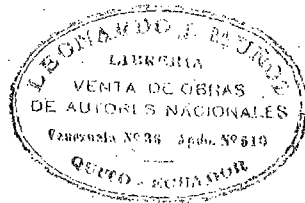 LEONARDO J. MUÑOZ
LIBRERIA
VENTA DE OBRAS
DE AUTORES NACIONALES
Venezuela Nº 38 Apdo. Nº 610
QUITO - ECUADOR